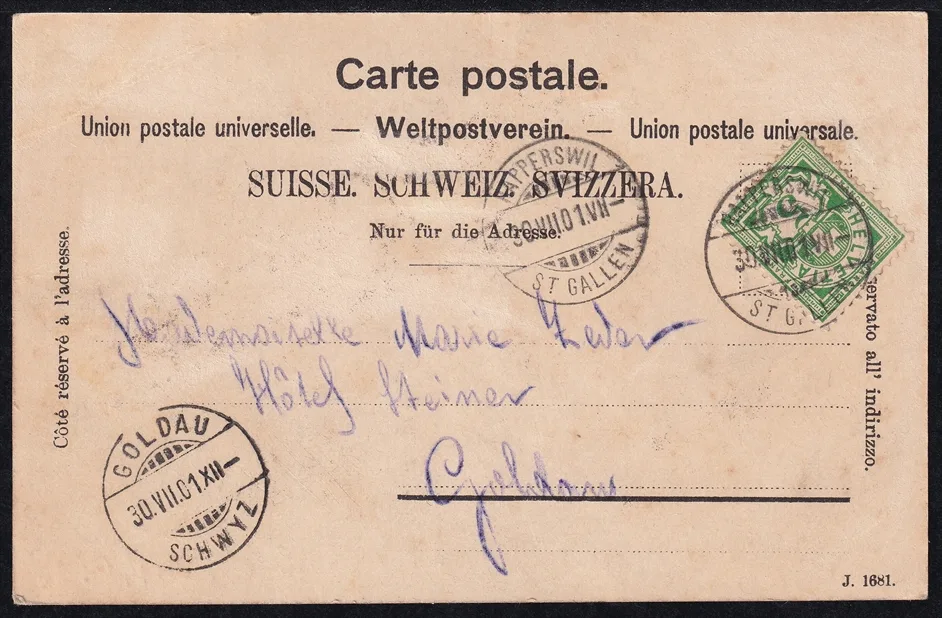 Carte postale.
Union postale universelle. — Weltpostverein. — Union postale universale.
SUISSE. SCHWEIZ. SVIZZERA.
Nur für die Adresse.
RAPPERSWIL
30.VII.01.VII—
ST GALLEN
HELVETIA
Côté réservé à l'adresse.
servato all' indirizzo.
Mademoiselle Marie Zeder
Hôtel Steiner
Goldau
GOLDAU
30.VII.01.XII—
SCHWYZ
J. 1681.